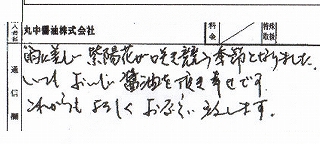 加入者名 丸中醤油株式会社 料金 特殊取扱
通信欄
雨に美しい紫陽花が咲き競う季節となりました。
いつもおいしい醤油を頂き幸せです。
これからもよろしくお願い致します。